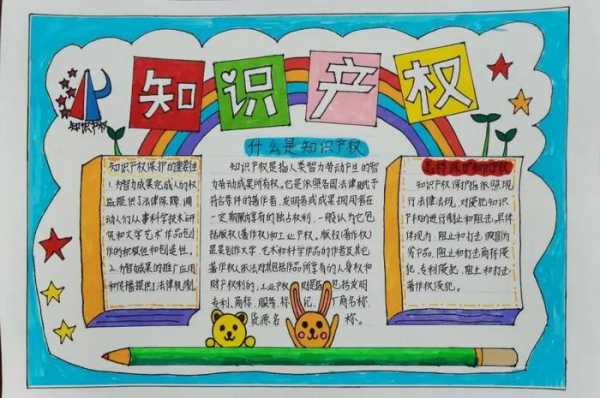 知识产权
知识产权
什么是知识产权
知识产权保护的重要性
1.为智力成果完成人的权
益提供了法律保障,调
动人们从事科学技术研
究和文学艺术作品创
作的积极性和创造性。
2.为智力成果的推广应用
和传播提供了法律机制
知识产权是指人类智力劳动产生的智
力劳动成果所有权。它是依照各国法律赋予
符合条件的著作者、发明者或成果拥有者在
一定期限内享有的独占权利,一般认为它包
括版权(著作权)和工业产权。版权(著作权)
是指创作文学、艺术和科学作品的作者及其他
著作权人依法对其作品所享有的人身权和
财产权利的,工业产权
包括发明
专利、商标、服务标记、厂商名称、
货源名称。
保护知识产权
知识产权保护指依照现
行法律法规,对侵犯知识
产权的进行制止和打击,具体
体现为:阻止和打击假冒伪
劣产品,阻止和打击商标侵
犯、专利侵犯,阻止和打击
著作权侵犯。